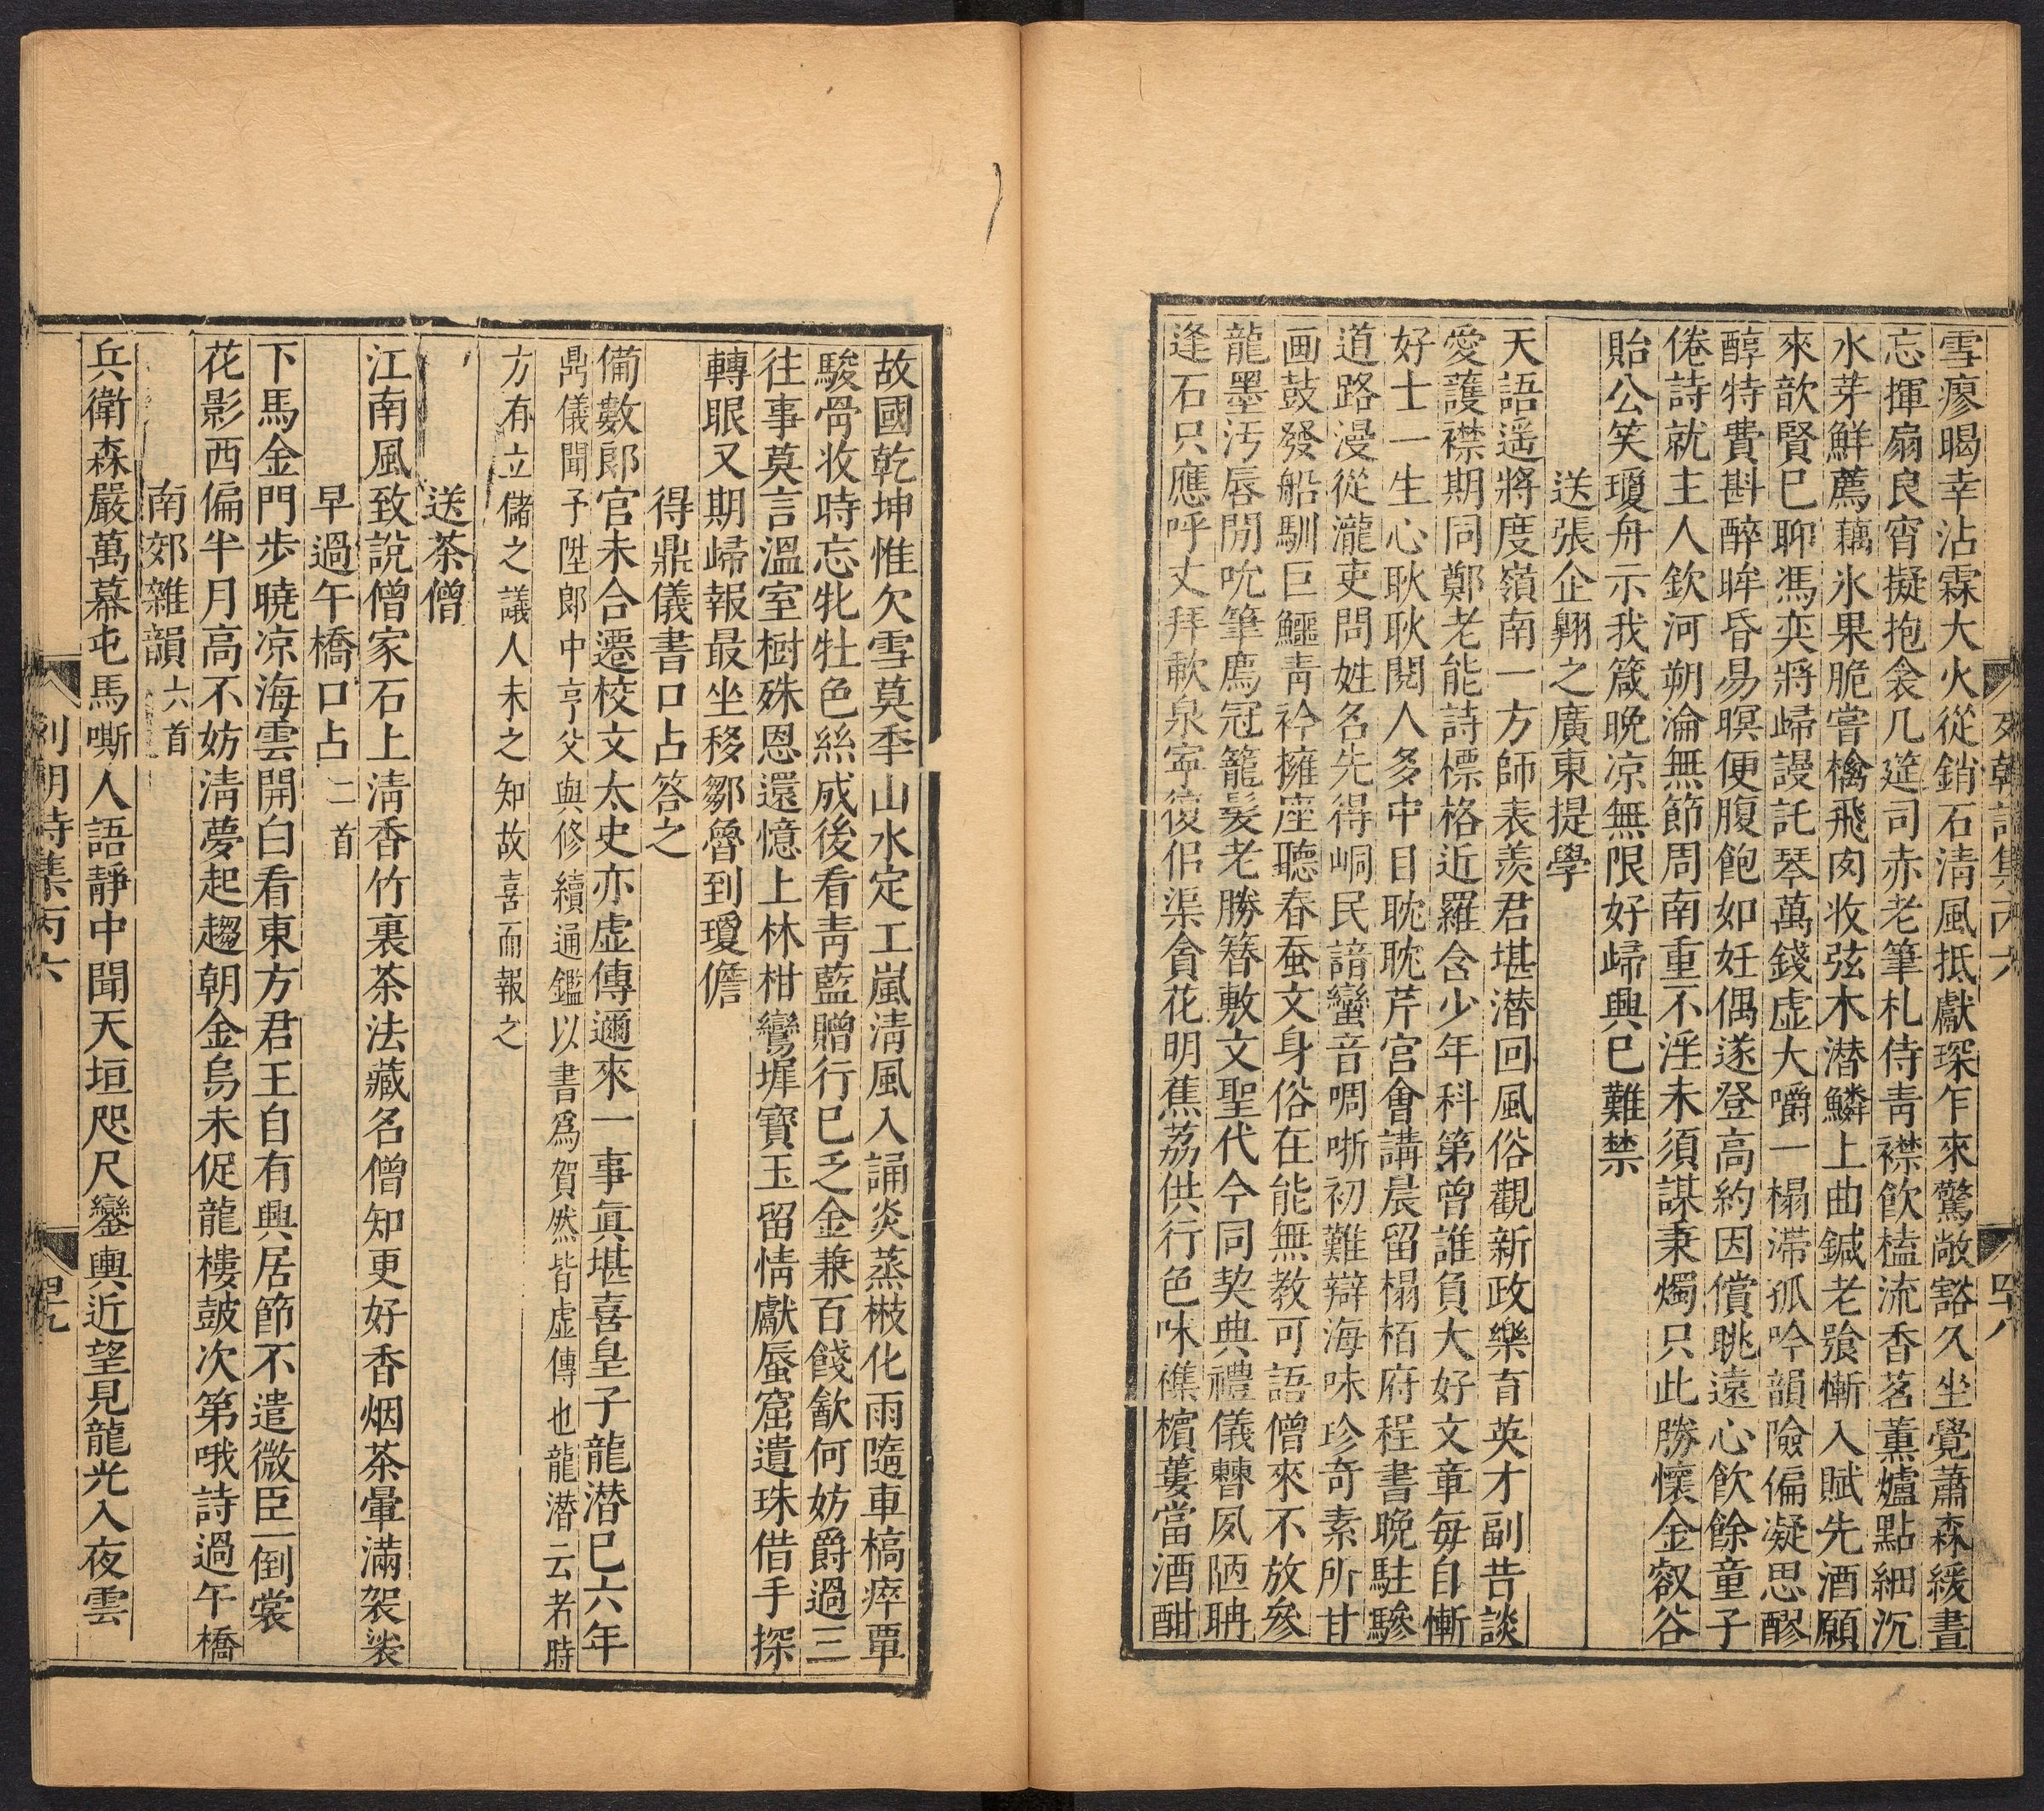 雪瘳暍幸沾霖大火從銷石清風抵獻琛乍來驚敞豁久坐覺蕭森緩晝
忘揮扇良宵擬抱衾几筵司赤老筆札侍青襟飲榼流香茗薰爐點細沉
水芽鮮薦藕氷果脆嘗檎飛肉收弦木潜鱗上曲鍼老飡慚入賦先酒願
來歆賢已聊馮奕將歸謾託琴萬錢虚大嚼一榻滯孤吟韻險偏凝思醪
醇特費斟醉眸昏易暝便腹飽如妊偶遂登高約因償眺遠心飲餘童子
倦詩就主人欽河朔淪無節周南重不淫未須謀秉燭只此勝懷金叡谷
貽公笑瓊舟示我箴晩凉無限好歸興已難禁
送張企翺之廣東提學
天語遥將度嶺南一方師表羨君堪潜回風俗觀新政樂育英才副昔談
愛護襟期同鄭老能詩標格近羅含少年科第曾誰負大好文章每自慚
好士一生心耿耿閱人多中目耽耽芹宫會講晨留榻栢府程書晩駐驂
道路漫從瀧吏問姓名先得峒民諳蠻音啁哳初難辯海味珍奇素所甘
画鼓發船馴巨鱷青衿擁座聽春蚕文身俗在能無教可語僧來不放叅
龍墨汚唇閒吮筆廌冠籠髮老勝簮敷文聖代今同契典禮儀曹夙陋聃
逢石只應呼丈拜歃泉寧復佀渠貪花明蕉荔供行色味襍檳蔞當酒酣
故國乾坤惟欠雪莫季山水定工嵐清風入誦炎蒸樕化雨隨車槁瘁覃
駿骨收時忘牝牡色絲成後看青藍贈行已乏金兼百餞歙何妨爵過三
往事莫言溫室樹殊恩還憶上林柑彎墀寳玉留情獻蜃窟遺珠借手探
轉眼又期歸報最坐移鄒魯到瓊儋
得鼎儀書口占答之
備數郎官未合遷校文太史亦虚傳邇來一事眞堪喜皇子龍潜巳六年
鼎儀聞予陞郎中亨父與修續通鑑以書爲賀然皆虚傳也龍潜云者時
方有立儲之議人未之知故喜而報之
送茶僧
江南風致說僧家石上清香竹裏茶法藏名僧知更好香烟茶暈滿袈裟
早過午橋口占二首
下馬金門步曉凉海雲開白看東方君王自有興居節不遣微臣一倒裳
花影西偏半月高不妨清夢起趨朝金烏未促龍樓鼓次第哦詩過午橋
南郊雜韻六首
兵衛森嚴萬幕屯馬嘶人語靜中聞天垣咫尺鑾輿近望見龍光入夜雲
列朝詩集丙六
四十九